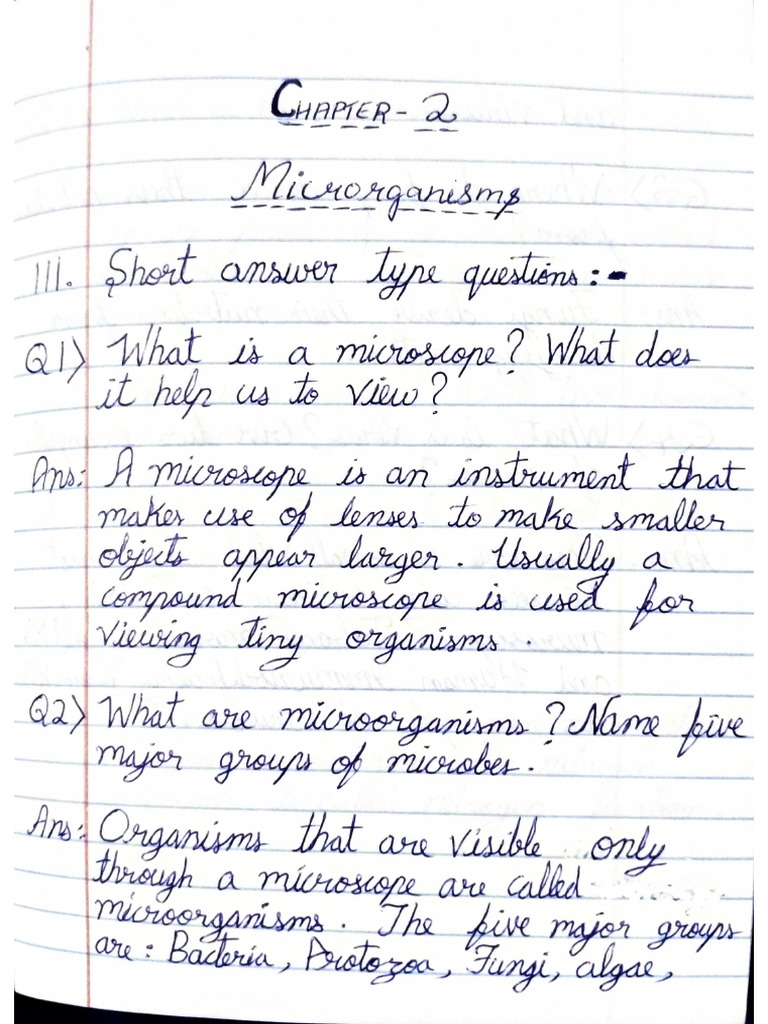 CHAPTER - 2
Microrganisms
III. Short answer type questions :-
Q1) What is a microscope? What does
it help us to view?
Ans: A microscope is an instrument that
makes use of lenses to make smaller
objects appear larger. Usually a
compound microscope is used for
viewing tiny organisms.
Q2) What are microorganisms? Name five
major groups of microbes.
Ans: Organisms that are visible only
through a microscope are called
microorganisms. The five major groups
are: Bacteria, Protozoa, Fungi, algae,